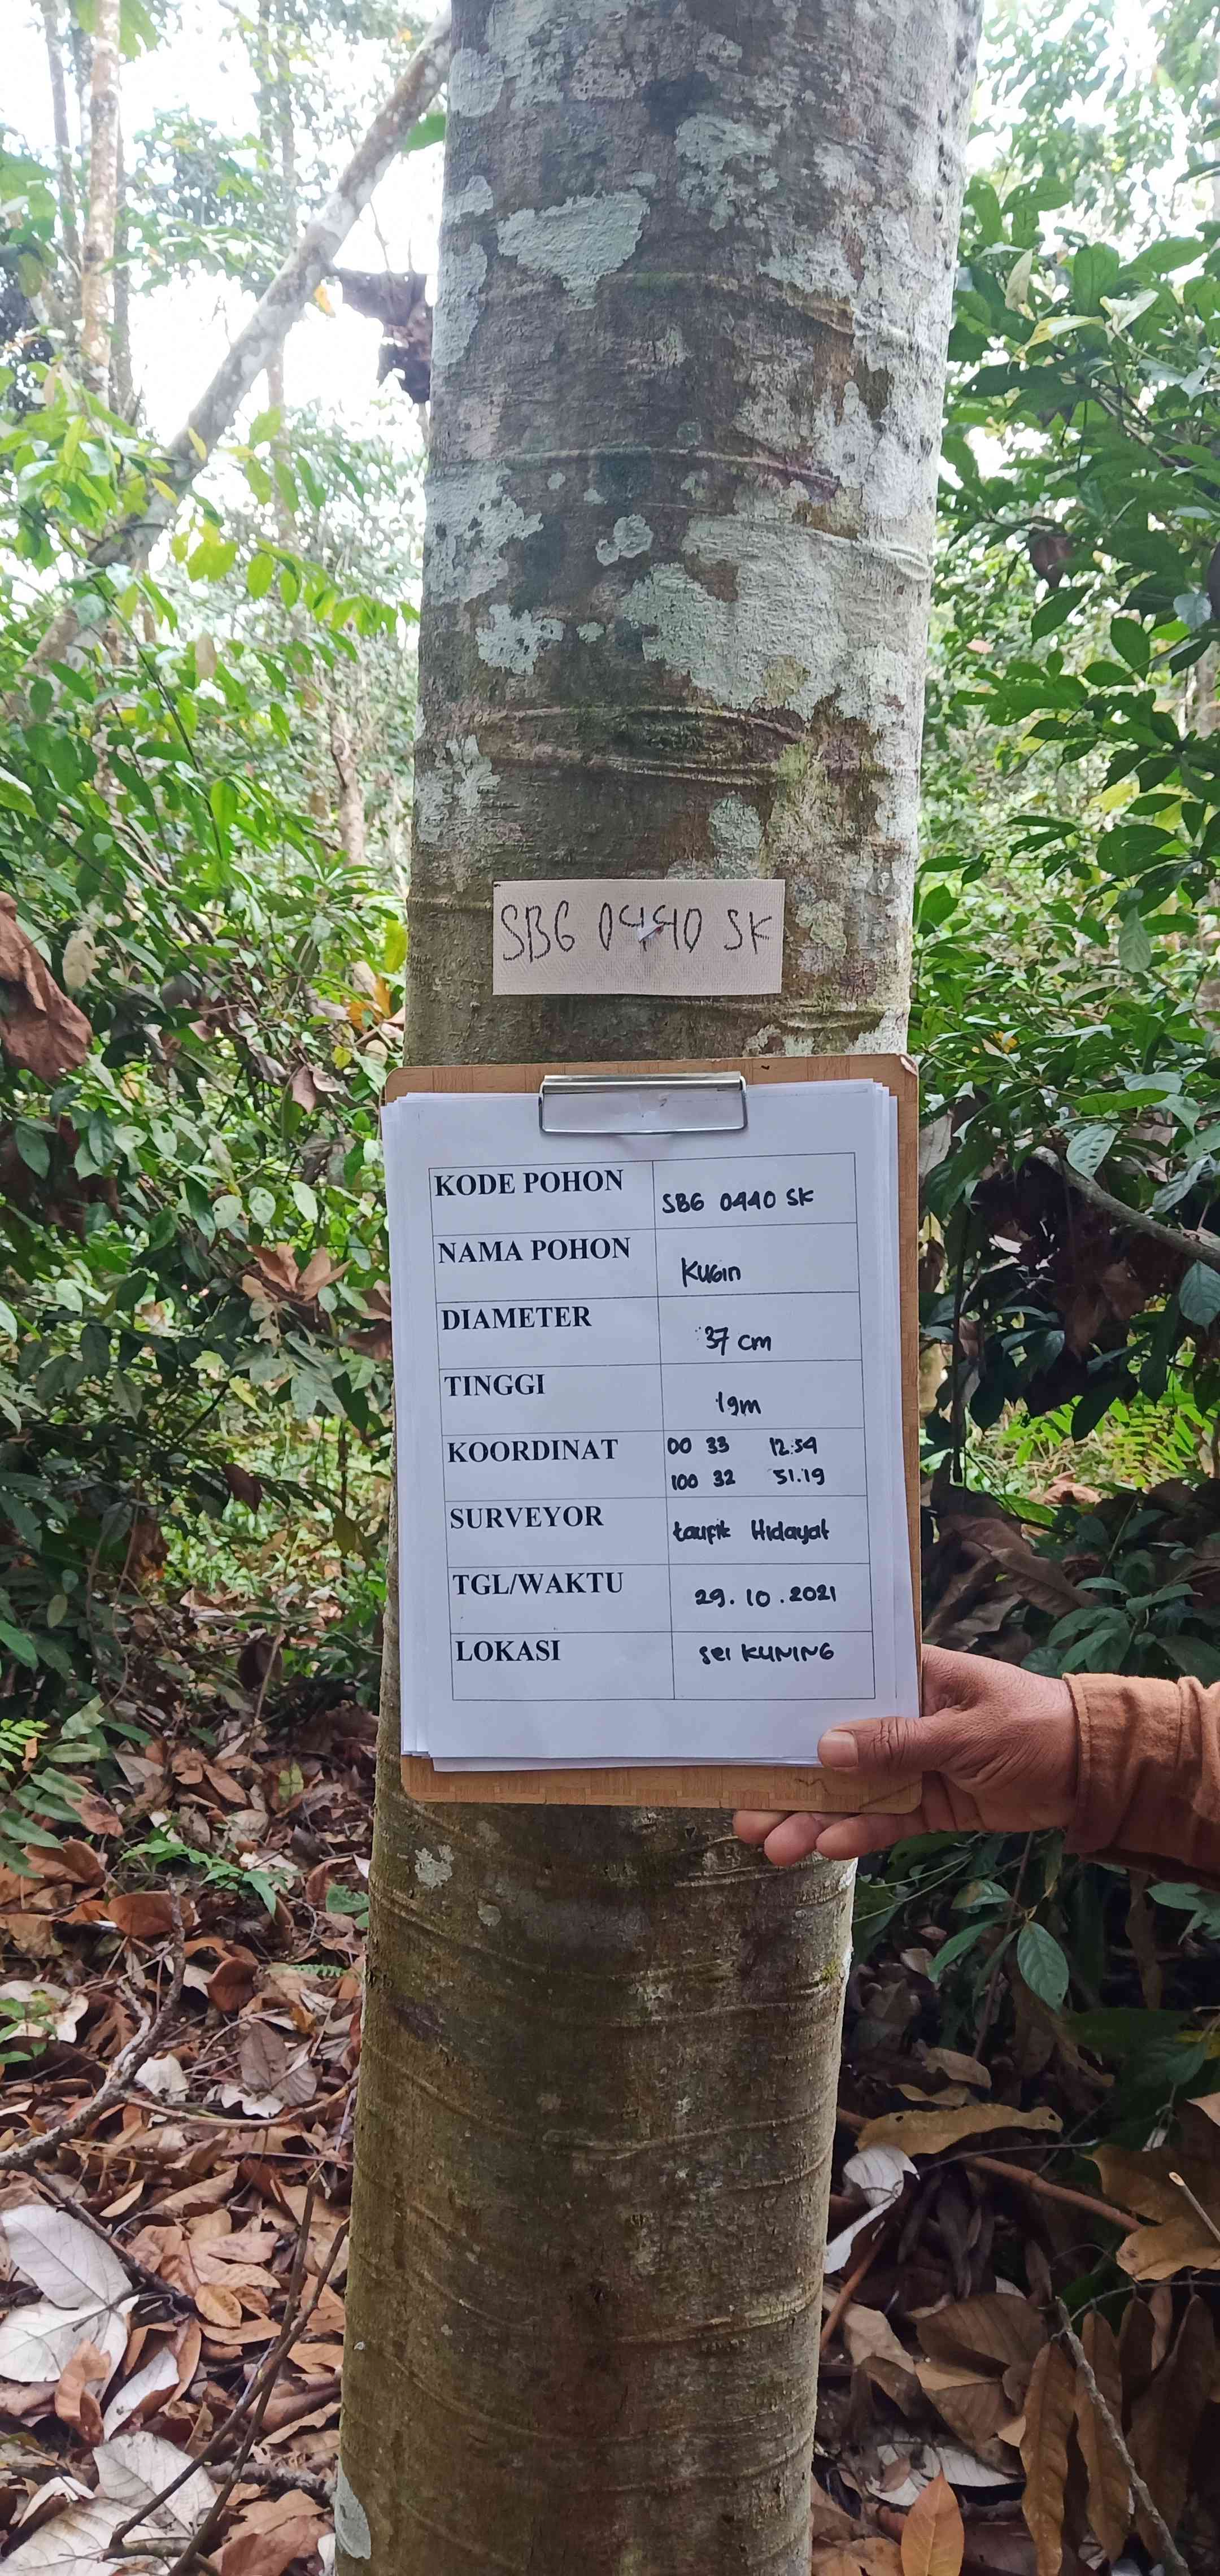 SBG 0440 SK
KODE POHON SBG 0440 SK
NAMA POHON Kugin
DIAMETER 37 cm
TINGGI 19m
KOORDINAT 00 33 12.54
100 32 51.19
SURVEYOR taufik Hidayat
TGL/WAKTU 29.10.2021
LOKASI Sei KUNING